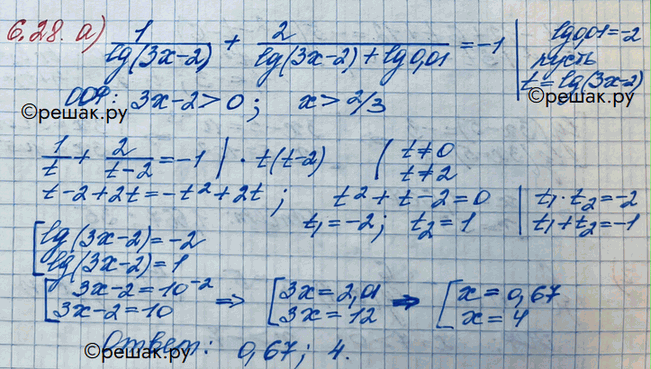 6.28. а) 1/lg(3x-2) + 2/(lg(3x-2)+lg0,01) = -1 | lg0,01=-2
пусть
t=lg(3x-2)
ООФ: 3x-2>0; x>2/3
©решак.ру
©решак.ру
1/t + 2/(t-2) = -1 | · t(t-2) ( t≠0
t≠2
t-2+2t=-t²+2t; t²+t-2=0 | t₁·t₂=-2
t₁=-2; t₂=1 | t₁+t₂=-1
[ lg(3x-2)=-2
lg(3x-2)=1
[ 3x-2=10⁻² ⇒ [ 3x=2,01 ⇒ [ x=0,67
3x-2=10 3x=12 x=4
Ответ: 0,67; 4.
©решак.ру